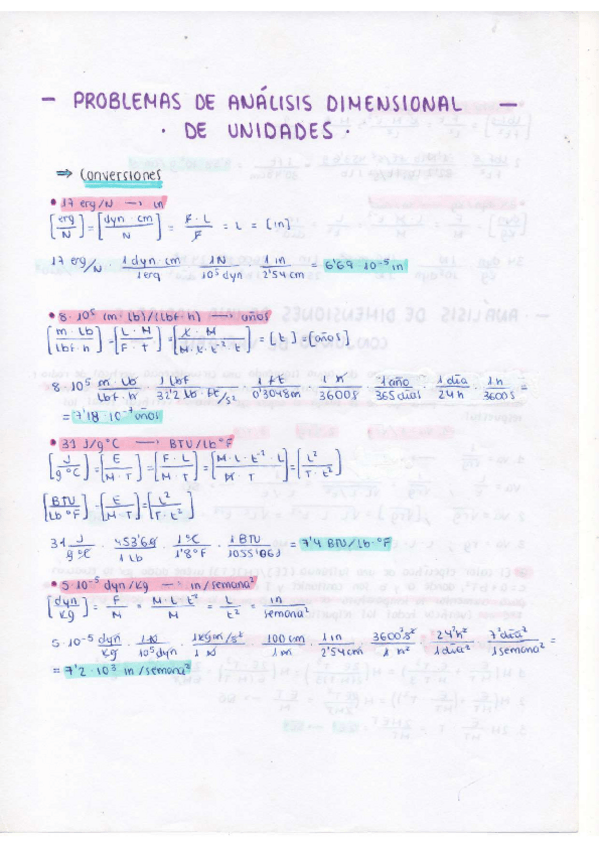 — PROBLEMAS DE ANÁLISIS DIMENSIONAL —
· DE UNIDADES ·
⇒ Conversiones
• 17 erg/N → in
[erg/N] = [dyn · cm / N] = F · L / F = L = [in]
17 erg/N · 1 dyn · cm / 1 erg · 1N / 10⁵ dyn · 1 in / 2'54 cm = 6'69 · 10⁻⁵ in
• 8 · 10⁵ (m · lb)/(lbf · h) → años
[m · lb / lbf · h] = [L · M / F · T] = [L · M / M · L · t⁻² · t] = [t] = [años]
8 · 10⁵ m · lb / lbf · h · 1 lbf / 32'2 lb · ft/s² · 1 ft / 0'3048m · 1 h / 3600s · 1 año / 365 días · 1 día / 24 h · 1 h / 3600 s =
= 7'18 · 10⁻⁷ años
• 31 J/g°C → BTU/lb°F
[J / g°C] = [E / M · T] = [F · L / M · T] = [M · L · t⁻² · L / M · T] = [L² / T · t²]
[BTU / lb°F] = [E / M · T] = [L² / T · t²]
31 J / g°C · 453'69 / 1 lb · 1°C / 1'8°F · 1 BTU / 1055'06J = 7'4 BTU/lb·°F
• 5 · 10⁻⁵ dyn/kg → in/semana²
[dyn / kg] = F / M = M · L · t⁻² / M = L / t² = in / semana²
5 · 10⁻⁵ dyn / kg · 1N / 10⁵ dyn · 1kg·m/s² / 1 N · 100 cm / 1 m · 1 in / 2'54 cm · 3600² s² / 1 h² · 24² h² / 1 día² · 7² día² / 1 semana² =
= 7'2 · 10³ in/semana²